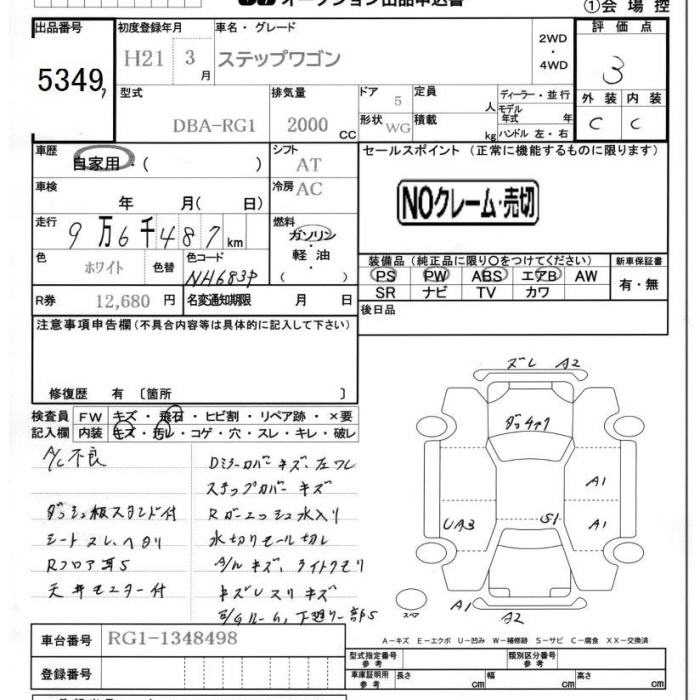 オークション出品申込書
①会場控
出品番号 初度登録年月 車名・グレード 2WD・4WD 評価点
5349 H21 3月 ステップワゴン 3
型式 排気量 ドア 定員 ディーラー・並行 外装 内装
DBA-RG1 2000 CC 5 人 モデル年式 年式 C C
形状 WG 積載 kg ハンドル 左・右
車歴 自家用・( ) シフト AT セールスポイント (正常に機能するものに限ります)
車検 年 月( 日) 冷房 AC
NOクレーム・売切
走行 9万6千487km 燃料 ガソリン・軽油・( )
色 ホワイト 色替 色コード NH683P
装備品 (純正品に限り〇をつけてください) 新車保証書
PS PW ABS エアB AW 有・無
SR ナビ TV カワ
R券 12,680 円 名変通知期限 月 日
後日品
注意事項申告欄 (不具合内容等は具体的に記入して下さい)
修復歴 有 〔箇所 〕
検査員 FW キズ・飛石・ヒビ割・リペア跡・×要
記入欄 内装 キズ・汚レ・コゲ・穴・スレ・キレ・破レ
A/C不良
ダッシュ板スタンド付
シートスレ、ヘタリ
Rフロア耳S
天井モニター付
Dミラーカバーキズ、左ワレ
ステップカバーキズ
Rガーニッシュ水入り
水切りモール切レ
A/Wキズ、ライトクモリ
キズレスリキズ
E/Gルーム、下廻り一部S
ズレ A2
ダッチァク
A1
UA3 S1 A1
A1 A2
スペア
A－キズ E－エクボ U－凹み W－補修跡 S－サビ C－腐食 XX－交換済
車台番号 RG1-1348498
登録番号
型式指定番号 参考 類別区分番号 参考
車庫証明用 参考 長さ cm 幅 cm 高さ cm